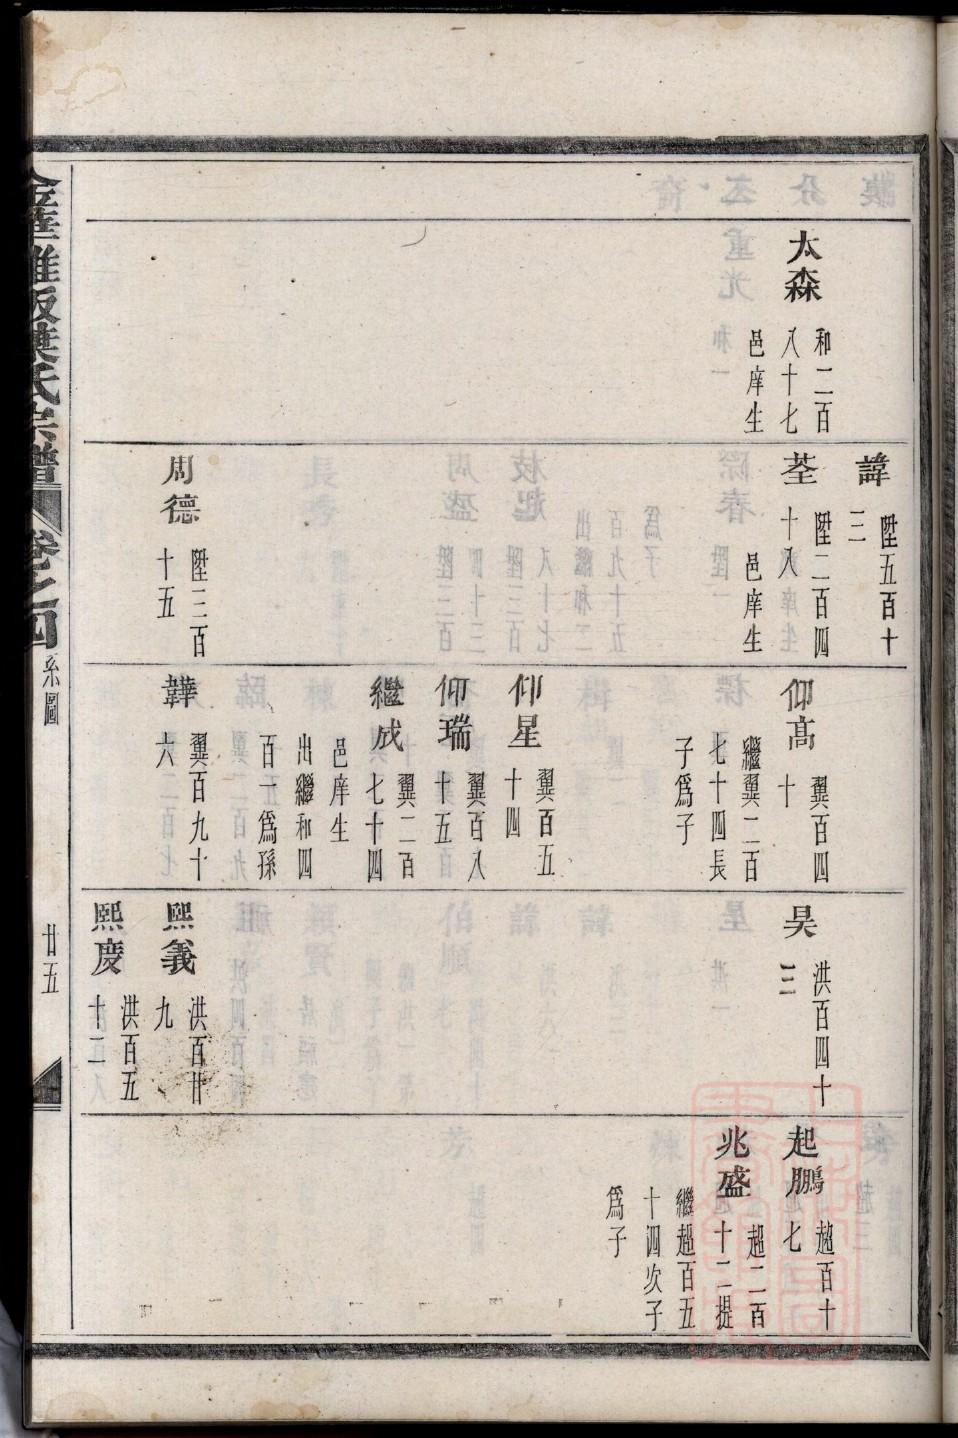 太森
和二百
八十七
邑庠生
諱
陞五百十
三
荃
陞二百四
十八
邑庠生
周德
陞三百
十五
仰高
翼百四
十
繼翼二百
七十四長
子爲子
仰星
翼百五
十四
仰瑞
翼百八
十五
繼成
翼二百
七十四
邑庠生
出繼和四
百一爲孫
韡
翼百九十
六
昊
洪百四十
三
熙義
洪百廿
九
熙慶
洪百五
十二
起鵬
超百十
七
兆盛
超二百
十二提
繼超百五
十四次子
爲子
氏宗譜
卷之四
系圖
廿五